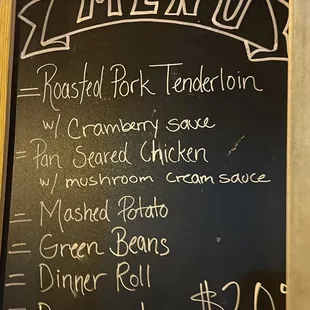 MENU
= Roasted Pork Tenderloin
w/ Cramberry sauce
= Pan Seared Chicken
w/ mushroom cream sauce
= Mashed Potato
= Green Beans
= Dinner Roll
$20